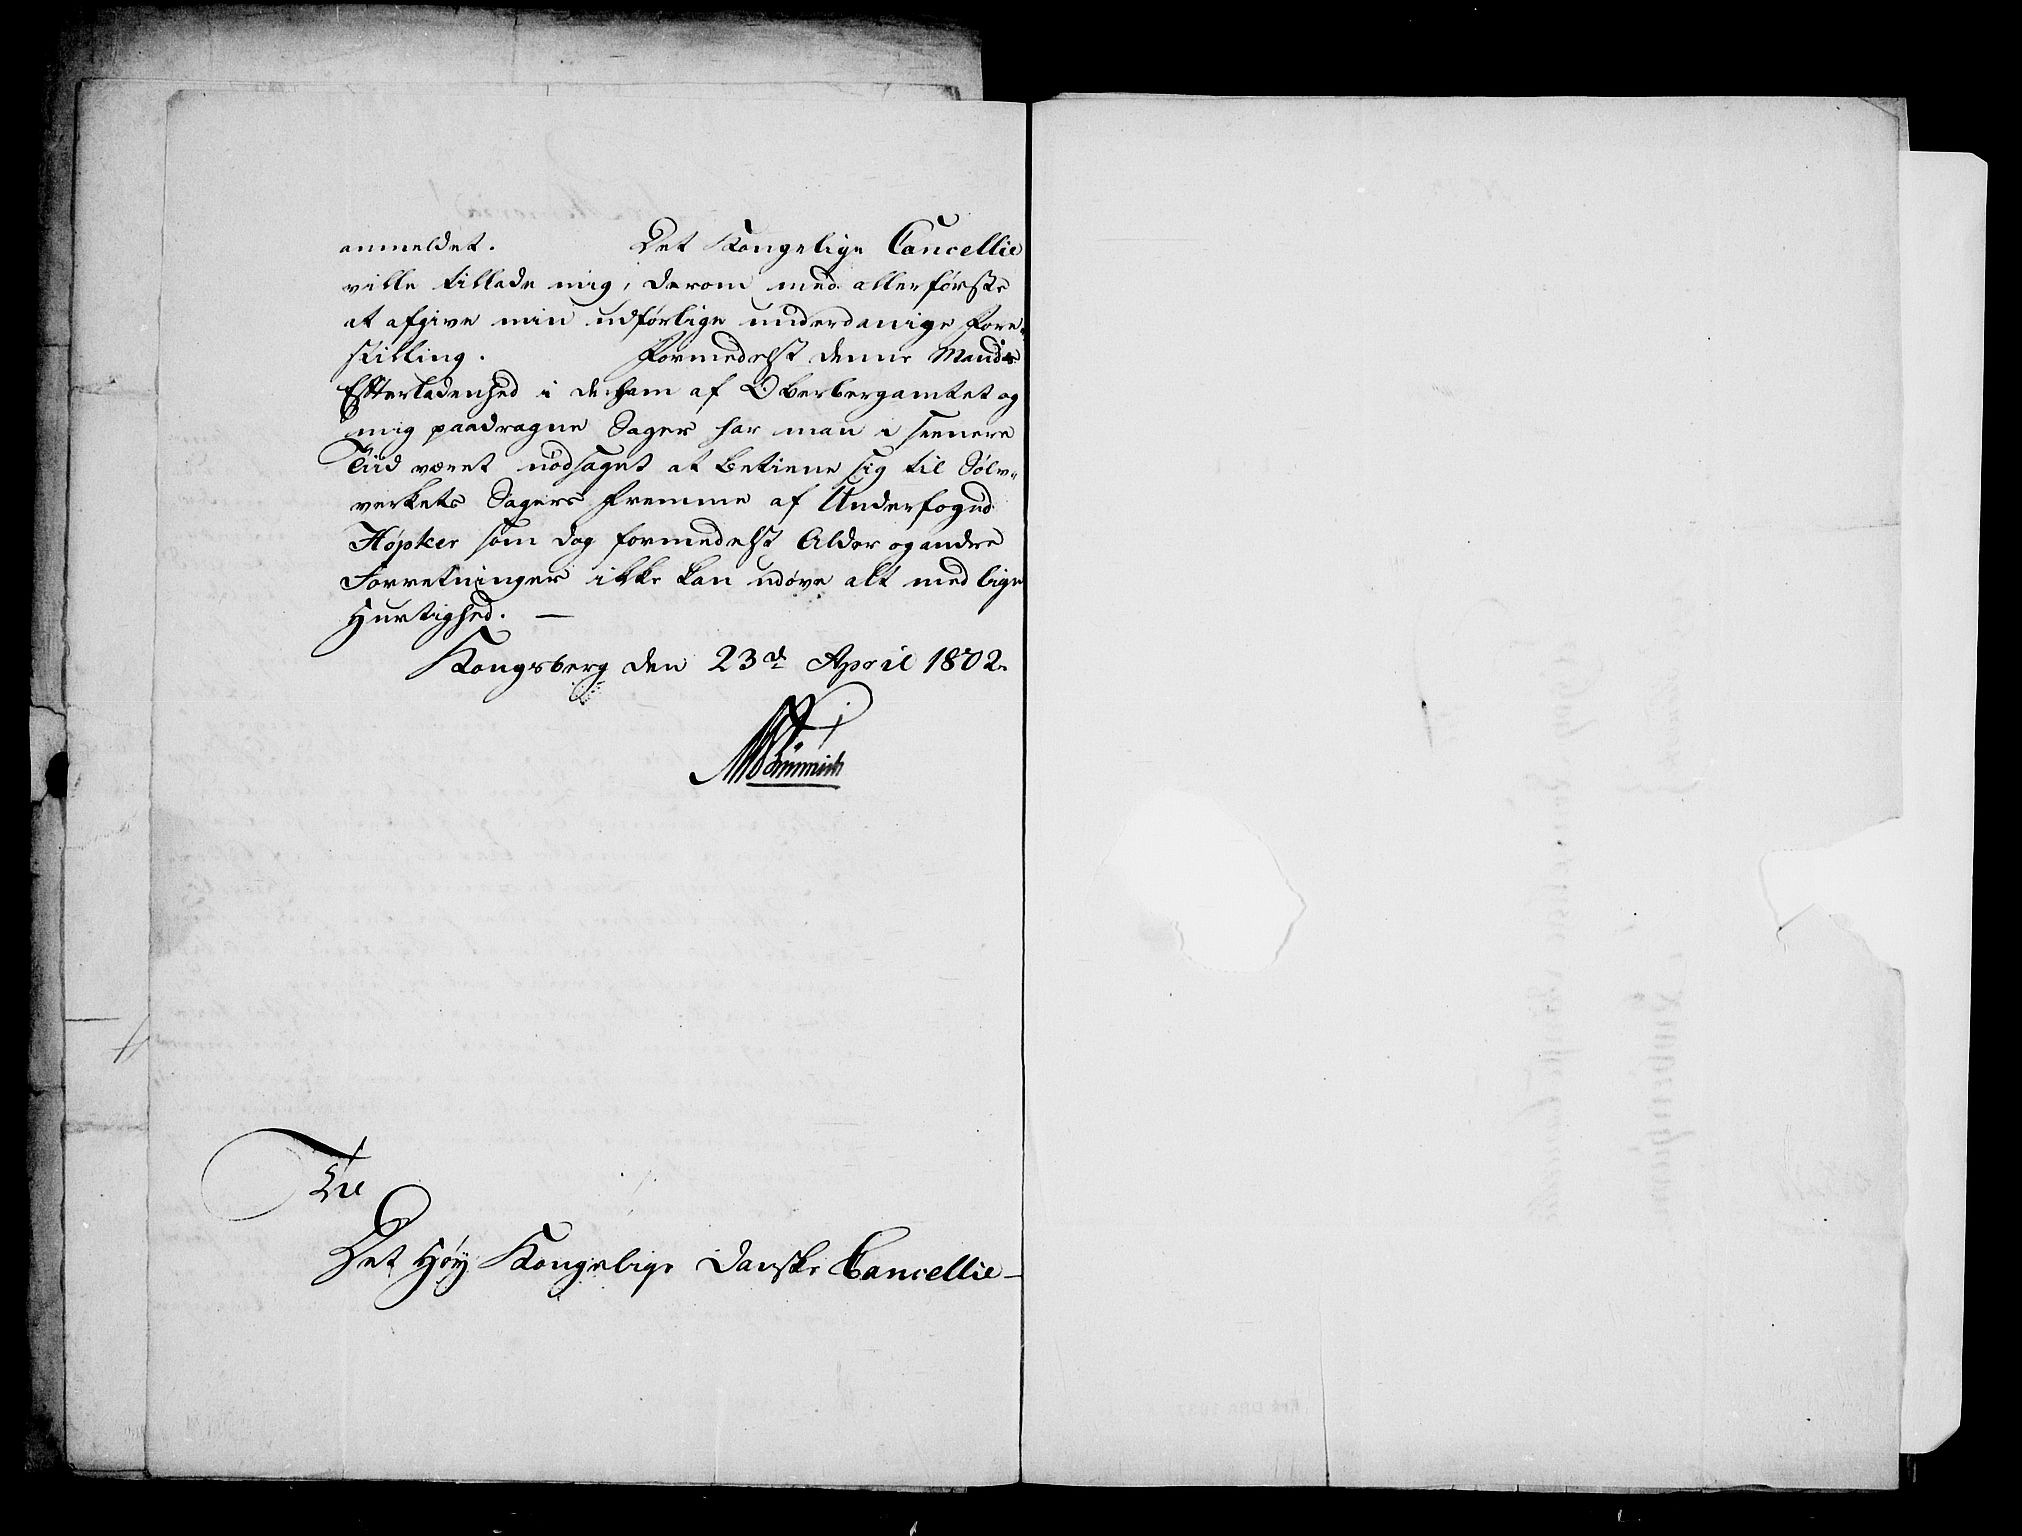 anmeldet. Det Kongelige Cancellie
ville tillade mig, derom med allerførste
at afgive min udførlige underdanige Fore-
stilling. Formedelst denne Mands
Efterladenhed i de ham af Oberbergamtet og
mig paadragne Sager har man i seenere
Tiid været nødsaget at betiene sig til Sølv-
verkets Sagers Fremme af Underfoged
Høpker som dog formedelst Alder og andre
Forretninger ikke kan udøve alt med lige
Hurtighed. —
Kongsberg den 23d April 1802.
Til
Det Høy Kongelige Danske Cancellie—